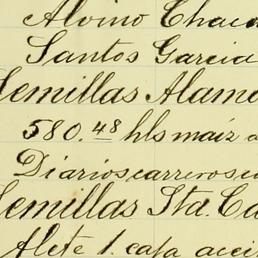 Alvino Chac
Santos Garcia
Semillas Alam
580.48 hls maíz
Diarios carreros
Semillas Sta. Ca
Flete 1. caja acei